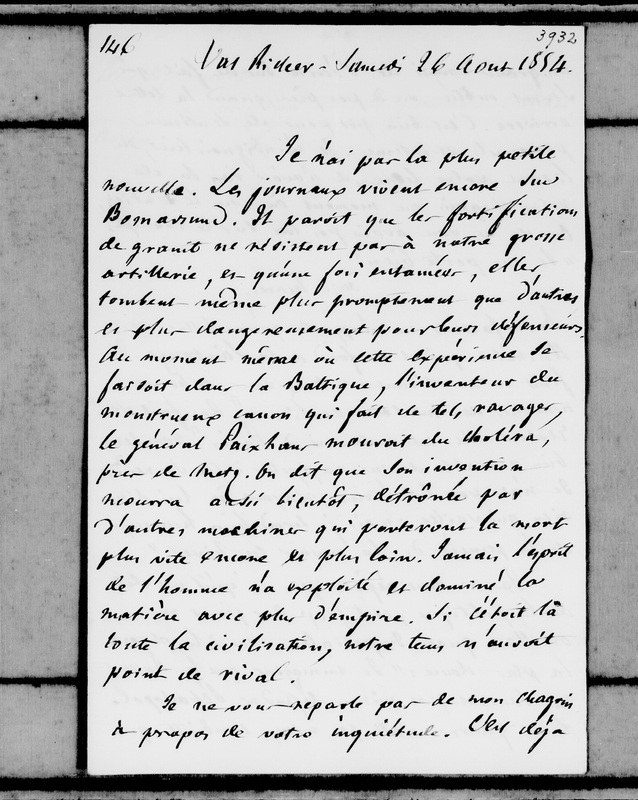 146
3932
Val Richer - Samedi 26 Aout 1854.
Je n'ai pas la plus petite
nouvelle. Les journaux vivent encore sur
Bomarsund. Il paroit que les fortifications
de granit ne résistent pas à notre grosse
artillerie, et qu'une fois entamées, elles
tombent même plus promptement que d'autres
et plus dangereusement pour leurs défenseurs.
Au moment même où cette expérience se
faisoit dans la Baltique, l'inventeur du
monstrueux canon qui fait de tels ravages,
le général Paixhans mouroit du choléra,
près de Metz. On dit que son invention
mourra aussi bientôt, détrônée par
d'autres machines qui porteront la mort
plus vite encore et plus loin. Jamais l'esprit
de l'homme n'a exploité et dominé la
matière avec plus d'empire. Si c'étoit là
toute la civilisation, notre tems n'auroit
point de rival.
Je ne vous reparle pas de mon chagrin
à propos de votre inquiétude. C'est déja